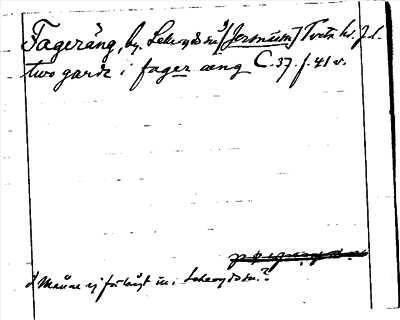 Fageräng, by. Lekeryds sn [Jersnäsm] Tveta hd. J. l.
two garda i fager æng C. 37. f. 41 v.
Månne ej förlagt in i Lekeryds sn.?